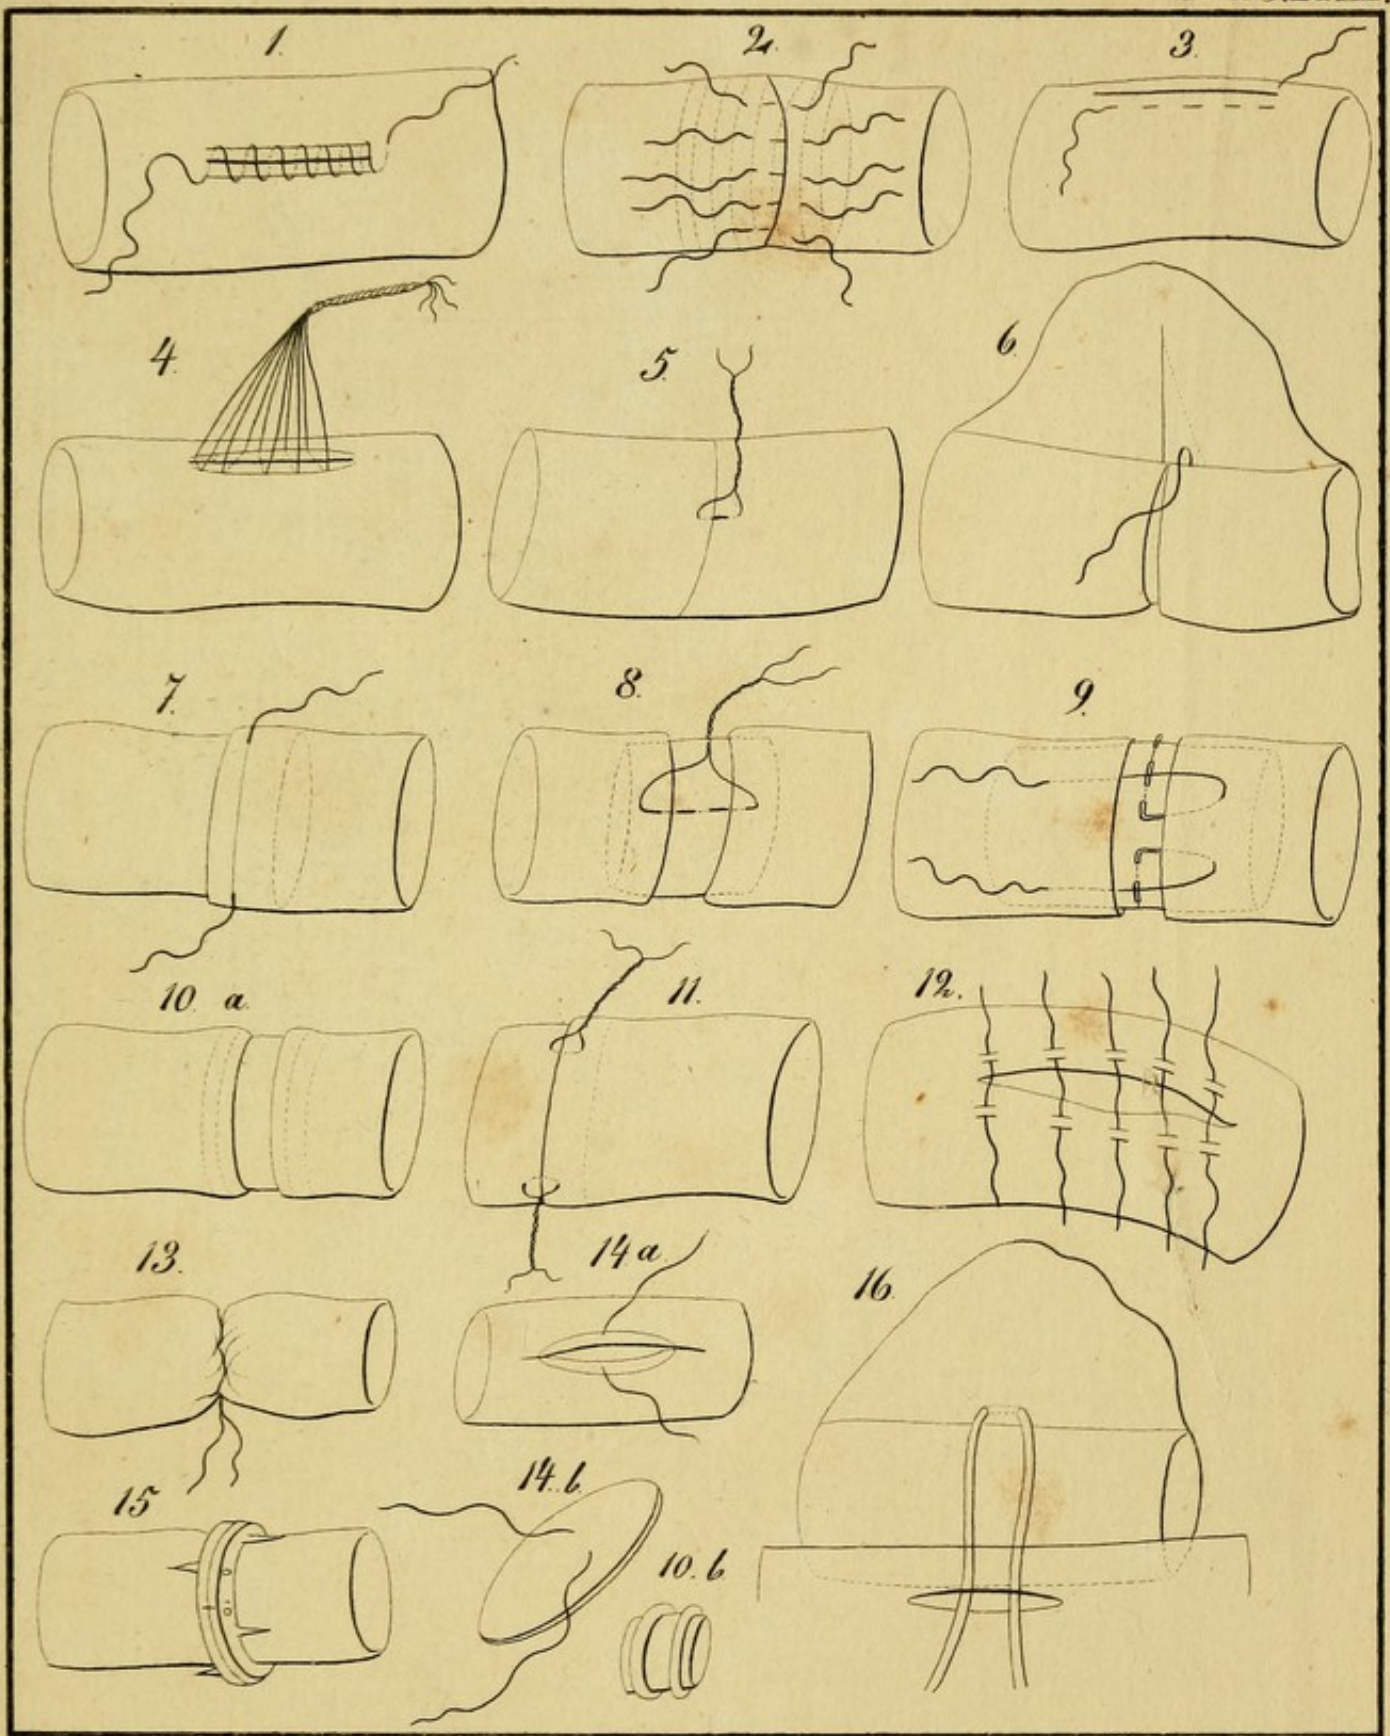 1.
2.
3.
4.
5.
6.
7.
8.
9.
10 a.
11.
12.
13.
14 a.
16.
15
14. b.
10. b